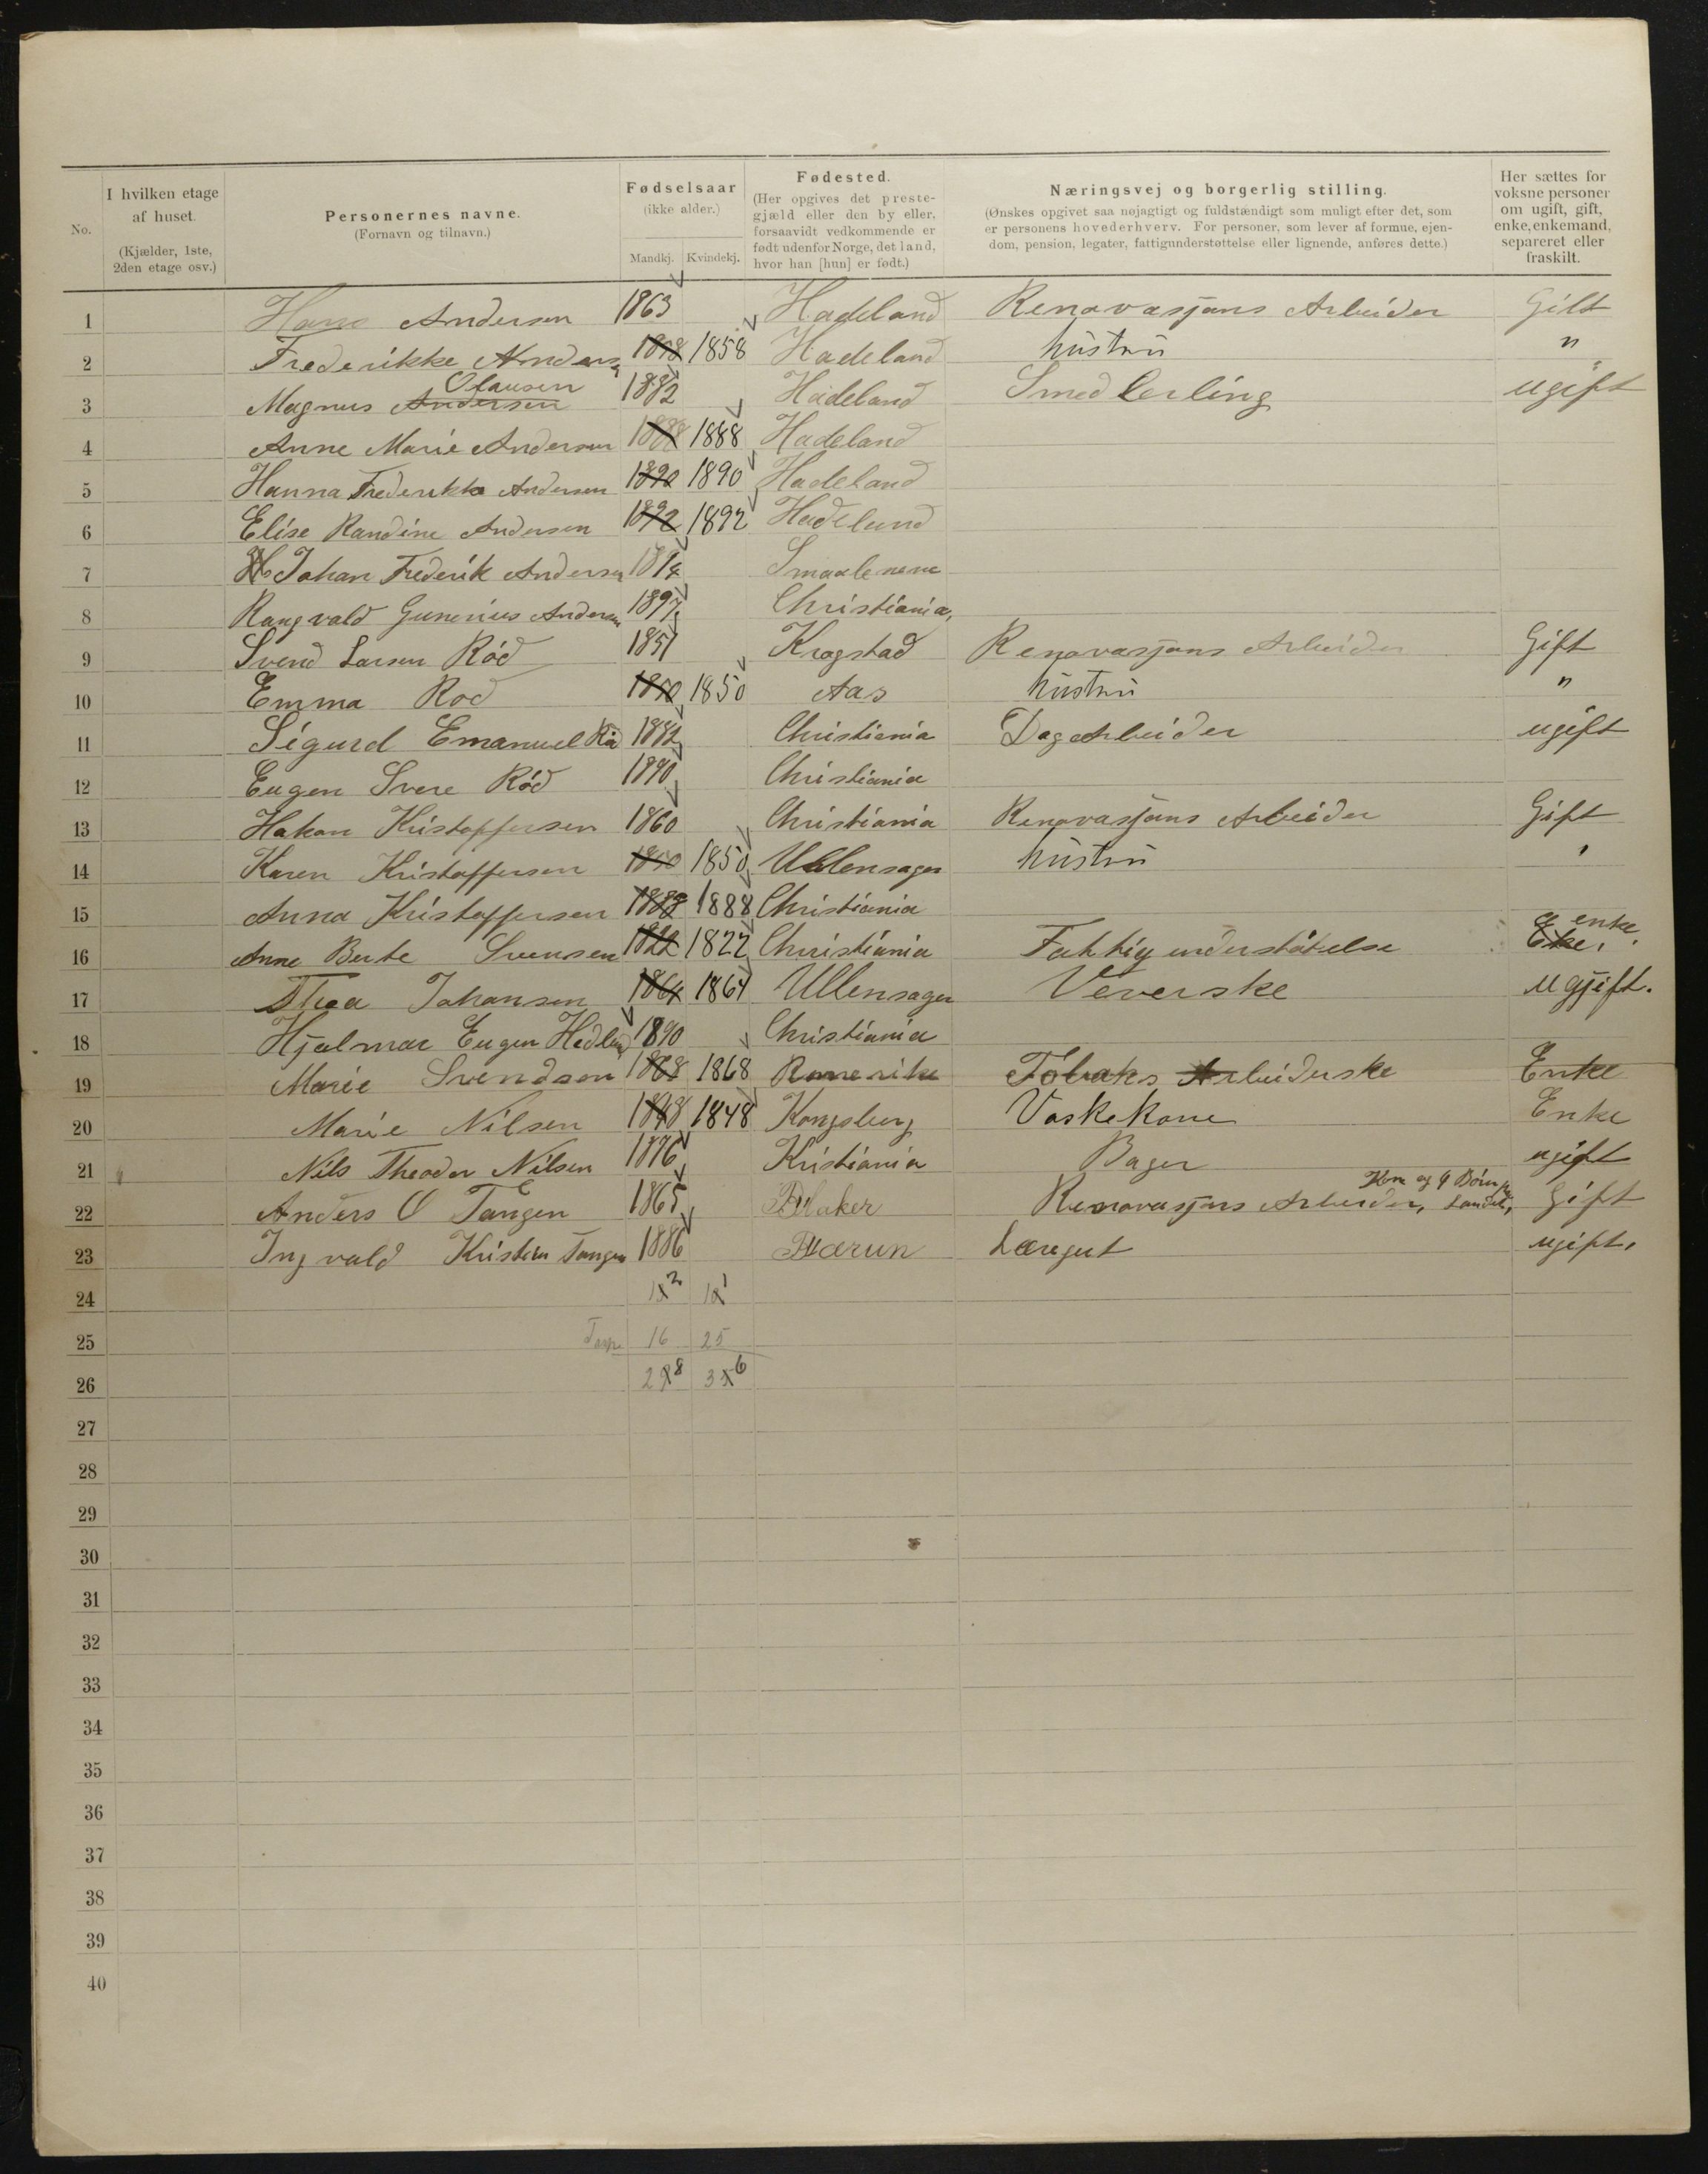 No.
I hvilken etage af huset.
(Kjælder, 1ste, 2den etage osv.)
Personernes navne.
(Fornavn og tilnavn.)
Fødselsaar
(ikke alder.)
Mandkj. Kvindekj.
Fødested.
(Her opgives det prestegjæld eller den by eller, forsaavidt vedkommende er født udenfor Norge, det land, hvor han [hun] er født.)
Næringsvej og borgerlig stilling.
(Ønskes opgivet saa nøjagtigt og fuldstændigt som muligt efter det, som er personens hovederhverv. For personer, som lever af formue, ejendom, pension, legater, fattigunderstøttelse eller lignende, anføres dette.)
Her sættes for voksne personer om ugift, gift, enke, enkemand, separeret eller fraskilt.
1 Hans Andersen 1863 Hadeland Renovasjons Arbeider Gift
2 Frederikke Anders 1858 1858 Hadeland hustru "
3 Magnus Andersen Olausen 1882 Hadeland Smed Lerling ugift
4 Anne Marie Andersen 1888 1888 Hadeland
5 Hanna Frederikke Andersen 1890 1890 Hadeland
6 Elise Randine Andersen 1892 1892 Hadeland
7 Johan Frederik Andersen 1894 Smaalenene
8 Rangvald Gunerius Andersen 1897 Christiania,
9 Svend Larsen Röd 1851 Krogstad Renovasjons Arbeider Gift
10 Emma Rod 1850 1850 Aas hustru "
11 Sigurd Emanuel Röd 1882 Christiania Dagarbeider ugift
12 Eugen Svere Röd 1890 Christiania
13 Hakon Kristoffersen 1860 Christiania Renovasjons Arbeider Gift
14 Karen Kristoffersen 1850 1850 Ullensager hustru "
15 Anna Kristoffersen 1888 1888 Christiania
16 Anne Berte Svensen 1822 1822 Christiania Fattig understötelse Eke, enke.
17 Thea Johansen 1864 1864 Ullensager Veverske ugjift.
18 Hjalmar Eugen Hedlund 1890 Christiania
19 Marie Svendsen 1868 1868 Romerike Tobaks Arbeiderske Enke
20 Marie Nilsen 1848 1848 Kongsberg Vaskekone Enke
21 Nils Theodor Nilsen 1876 Kristiania Bager ugift
22 Anders O Tangen 1865 Blaker Renovasjons Arbeider, Kone og 9 Börn på Landet, Gift
23 Ingvald Kristian Tangen 1886 Bærun Læregut ugift,
24 2 1
25 16 25
26 28 36
27
28
29
30
31
32
33
34
35
36
37
38
39
40